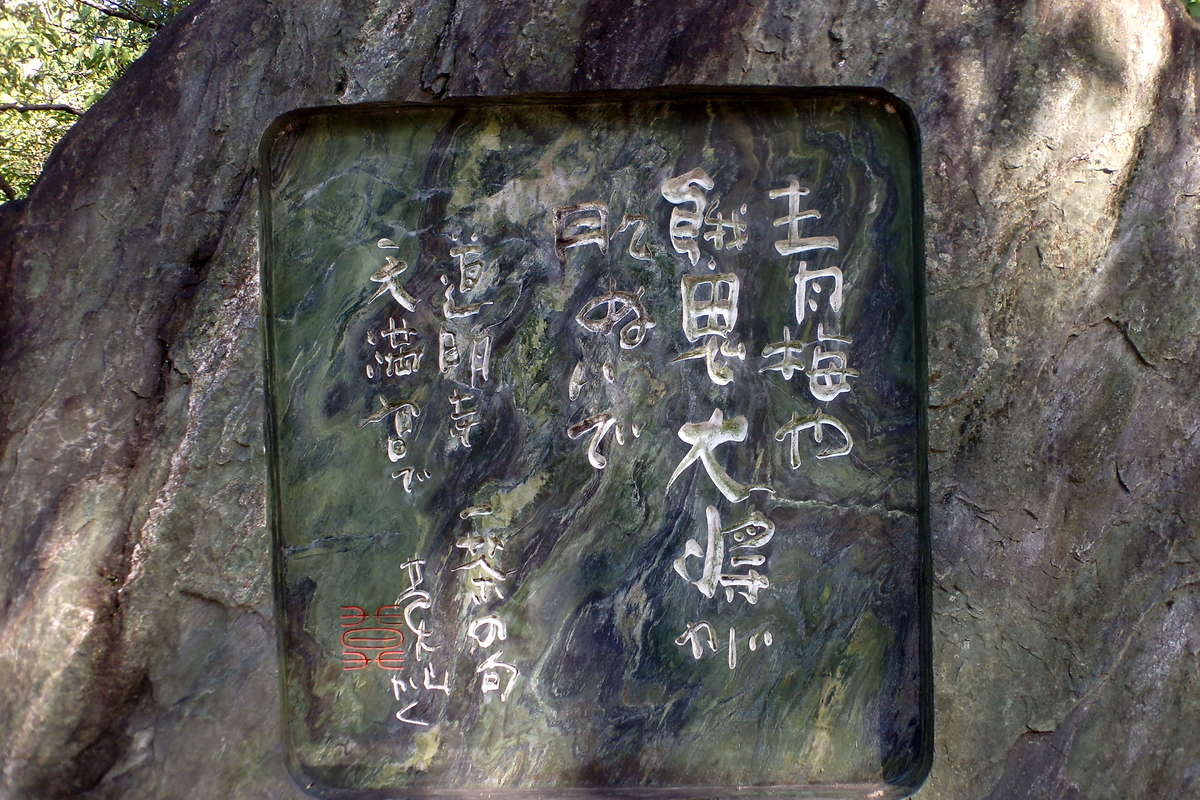 青梅や
餓鬼大将が
肌ぬいで
道明寺 一茶の句
天満宮で